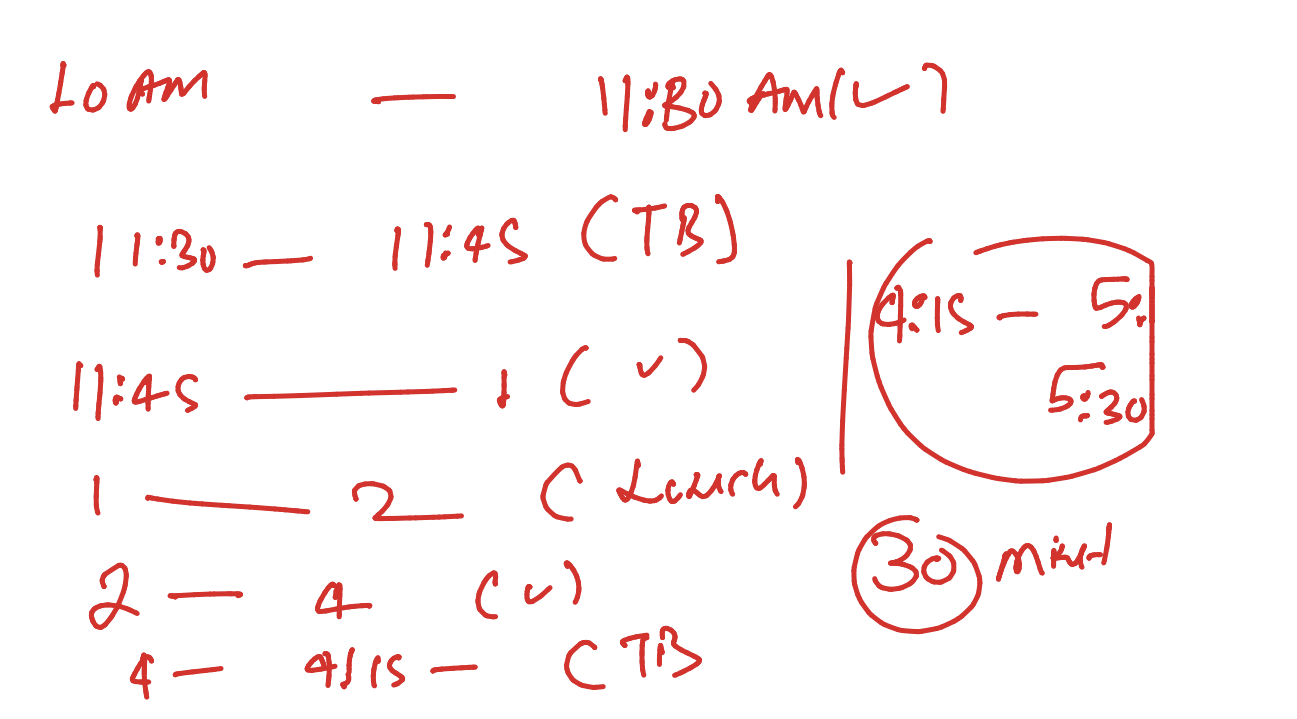 10 AM — 11:30 AM (✓)
11:30 — 11:45 (TB)
11:45 — 1 (✓)
1 — 2 (Lunch)
2 — 4 (✓)
4 — 4:15 — (TB
4:15 — 5:
5:30
30